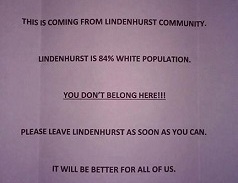 THIS IS COMING FROM LINDENHURST COMMUNITY.
LINDENHURST IS 84% WHITE POPULATION.
YOU DON'T BELONG HERE!!!
PLEASE LEAVE LINDENHURST AS SOON AS YOU CAN.
IT WILL BE BETTER FOR ALL OF US.